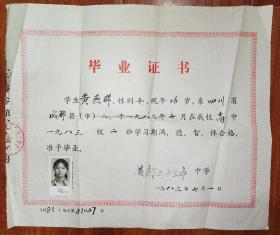 毕业证书
学生黄燕群，性别女，现年16岁，系四川省
成都县（市）人，于一九八三年七月在我校高中
一九八三级二班学习期满，德、智、体合格，
准予毕业。
成都二十三中中学
一九八三年七月一日
(83)毕业字第83027号